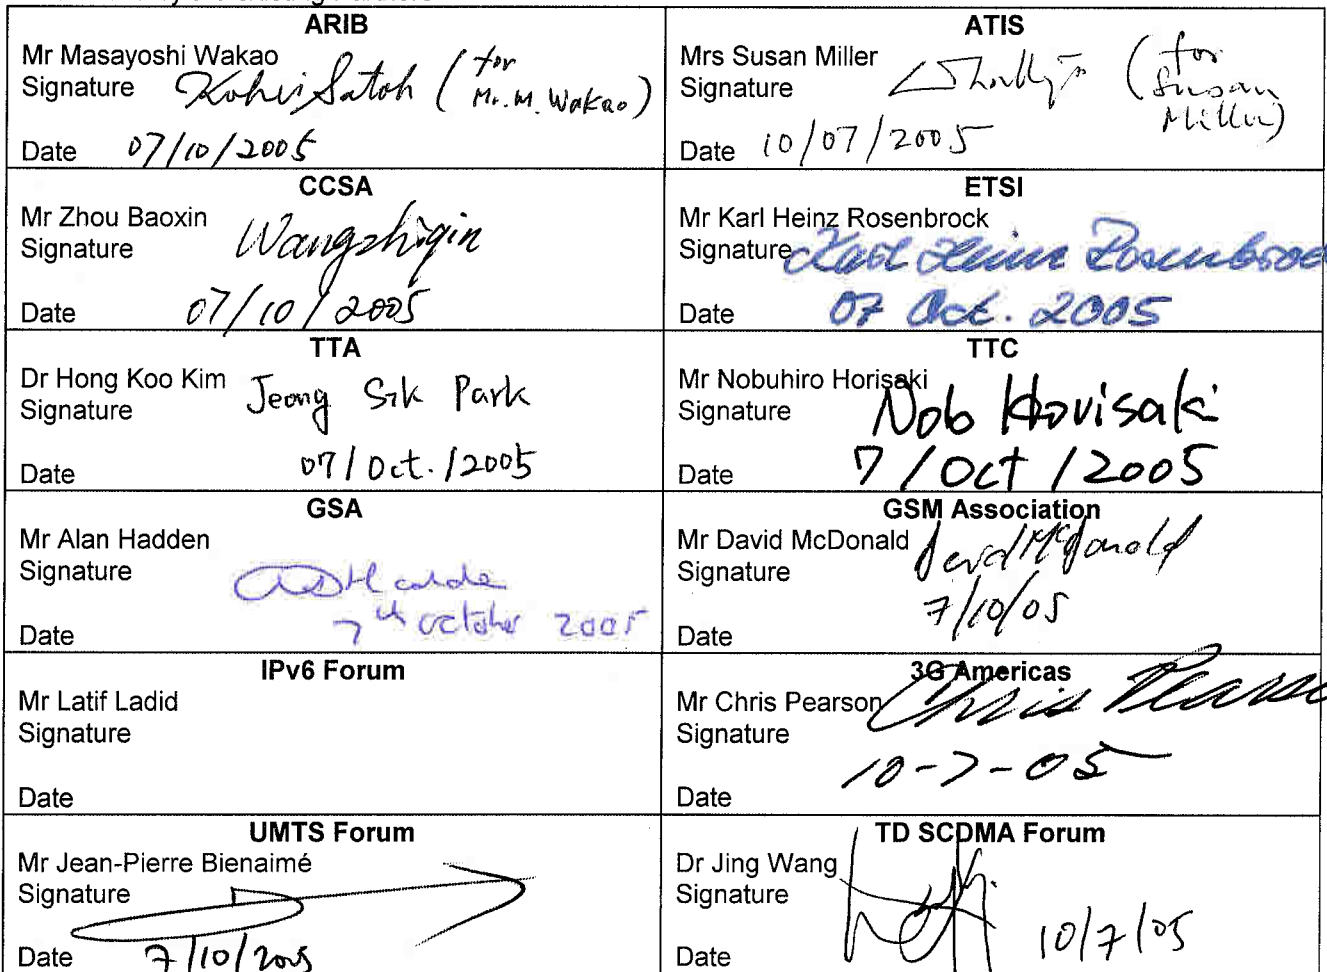 ARIB
Mr Masayoshi Wakao
Signature Kohei Satoh ( for Mr. M. Wakao)
Date 07/10/2005
ATIS
Mrs Susan Miller
Signature (for Susan Miller)
Date 10/07/2005
CCSA
Mr Zhou Baoxin
Signature Wangzhiqin
Date 07/10/2005
ETSI
Mr Karl Heinz Rosenbrock
Signature Karl Heinz Rosenbroc
Date 07 Oct. 2005
TTA
Dr Hong Koo Kim
Signature Jeong Sik Park
Date 07/Oct./2005
TTC
Mr Nobuhiro Horisaki
Signature Nob Horisaki
Date 7/Oct/2005
GSA
Mr Alan Hadden
Signature
Date 7th October 2005
GSM Association
Mr David McDonald
Signature David McDonald
Date 7/10/05
IPv6 Forum
Mr Latif Ladid
Signature
Date
3G Americas
Mr Chris Pearson
Signature Chris Pearso
Date 10-7-05
UMTS Forum
Mr Jean-Pierre Bienaimé
Signature
Date 7/10/2005
TD SCDMA Forum
Dr Jing Wang
Signature
Date 10/7/05